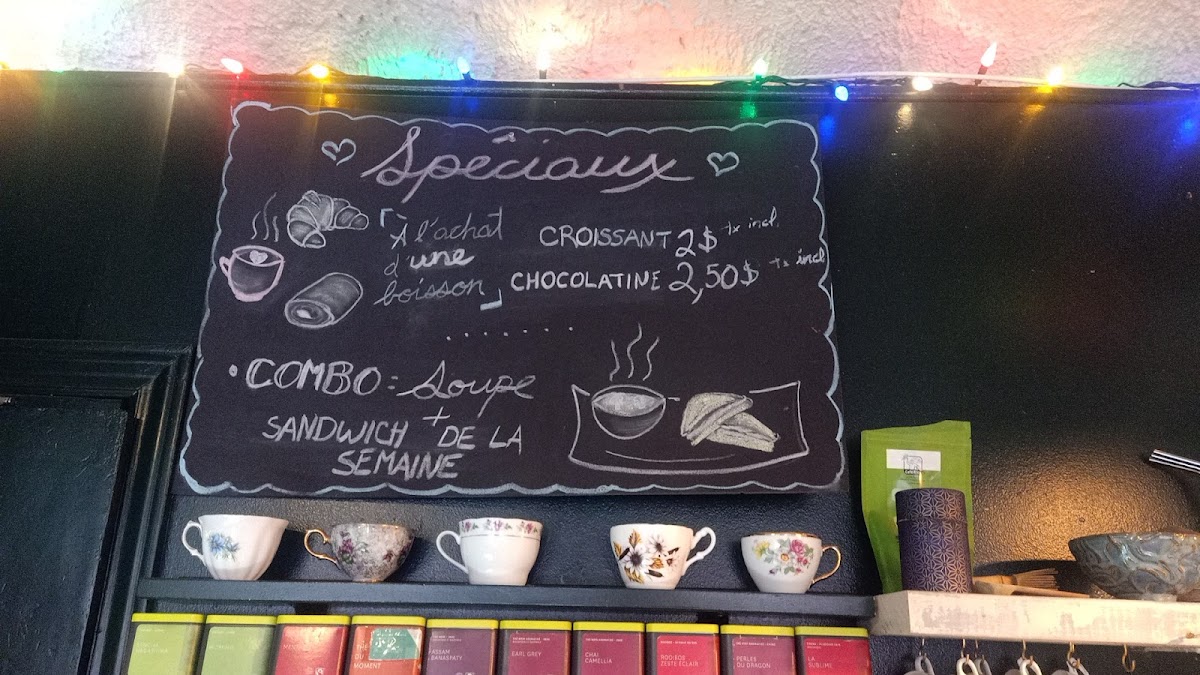 Spéciaux
À l'achat
d'une
boisson
CROISSANT 2$ tx incl
CHOCOLATINE 2,50$ tx incl
• COMBO: Soupe
+
SANDWICH DE LA
SEMAINE
EARL GREY
CHAI
CAMELLIA
ROOIBOS
ZESTE ÉCLAIR
PERLES
DU DRAGON
LA
SUBLIME
MOMENT
ASSAM
BANASPATY